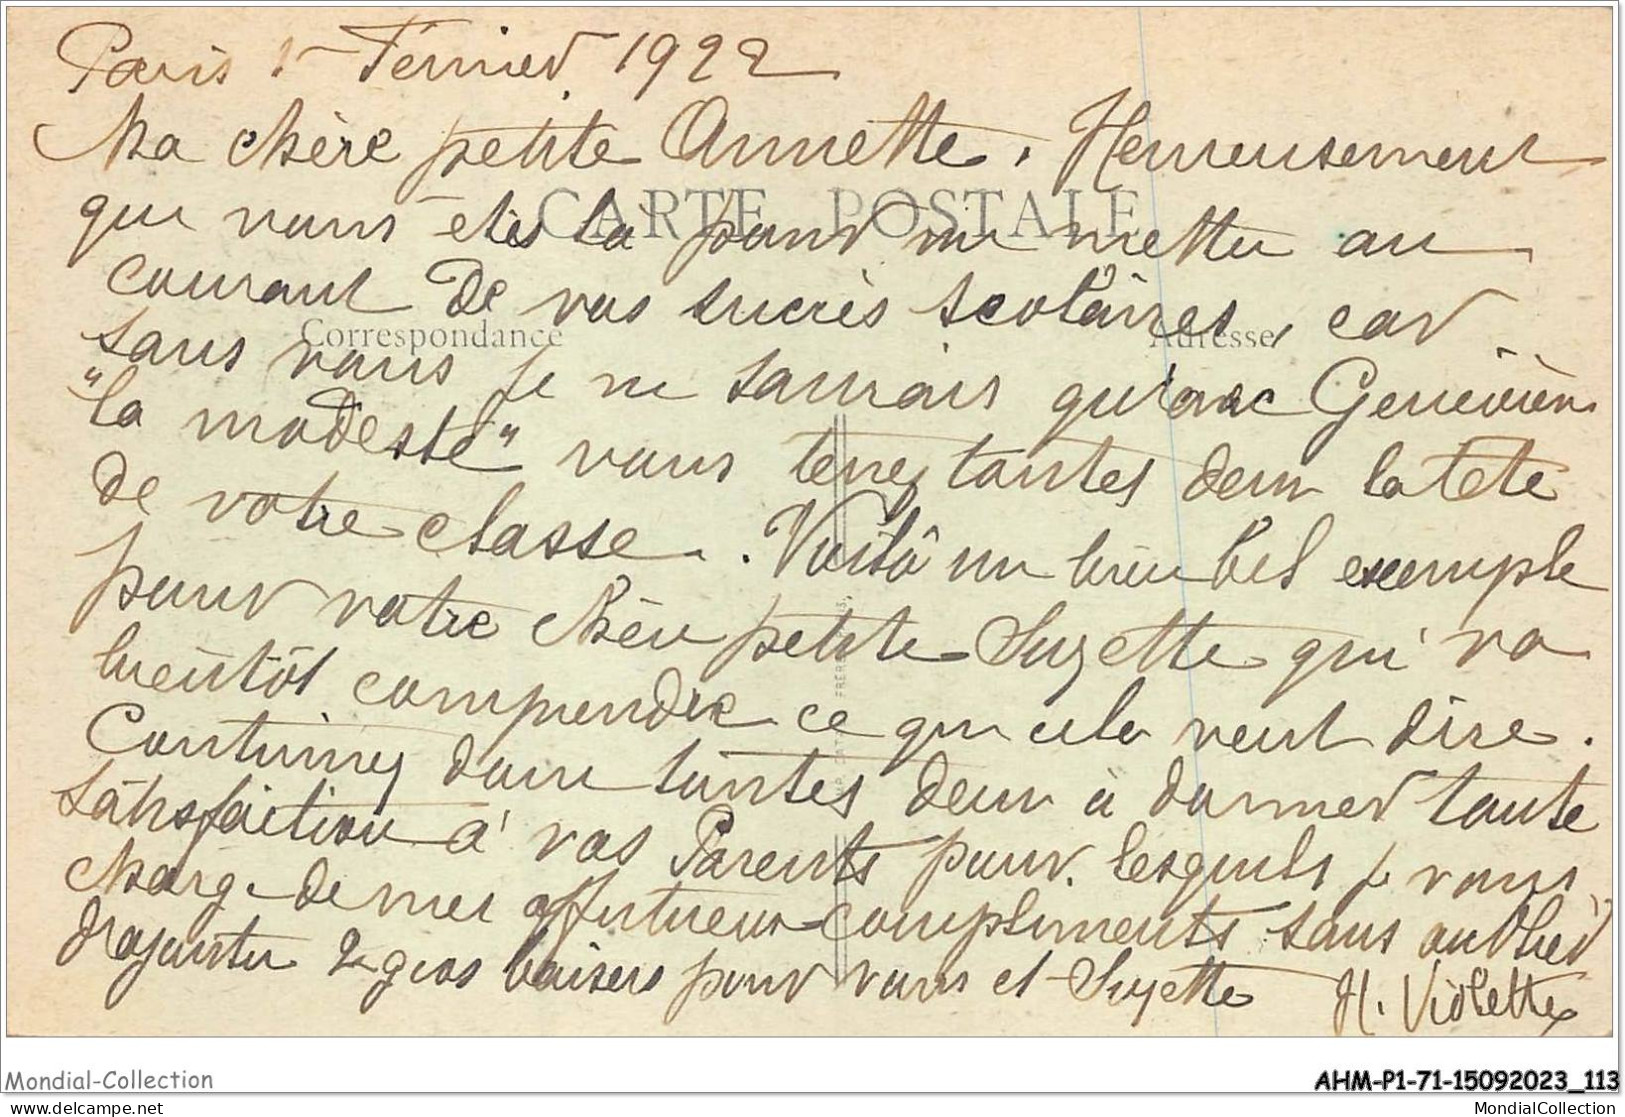 Paris 1er Février 1922
Ma chère petite Annette, Heureusement
CARTE POSTALE
que vous êtes là pour me mettre au
courant de vos succès scolaires, car
Correspondance
Adresse
sans vous je ne saurais qu'avec Geneviève
"la modeste" vous tenez toutes deux la tête
de votre classe. Voilà un bien bel exemple
pour votre chère petite Suzette qui va
bientôt comprendre ce que cela veut dire.
Continuez donc toutes deux à donner toute
satisfaction à vos Parents pour lesquels je vous
charge de mes affectueux compliments sans oublier
d'rajouter 2 gros baisers pour vous et Suzette H. Violette
FRERES
Mondial-Collection
AHM-P1-71-15092023_113
delcampe.net
MondialCollection